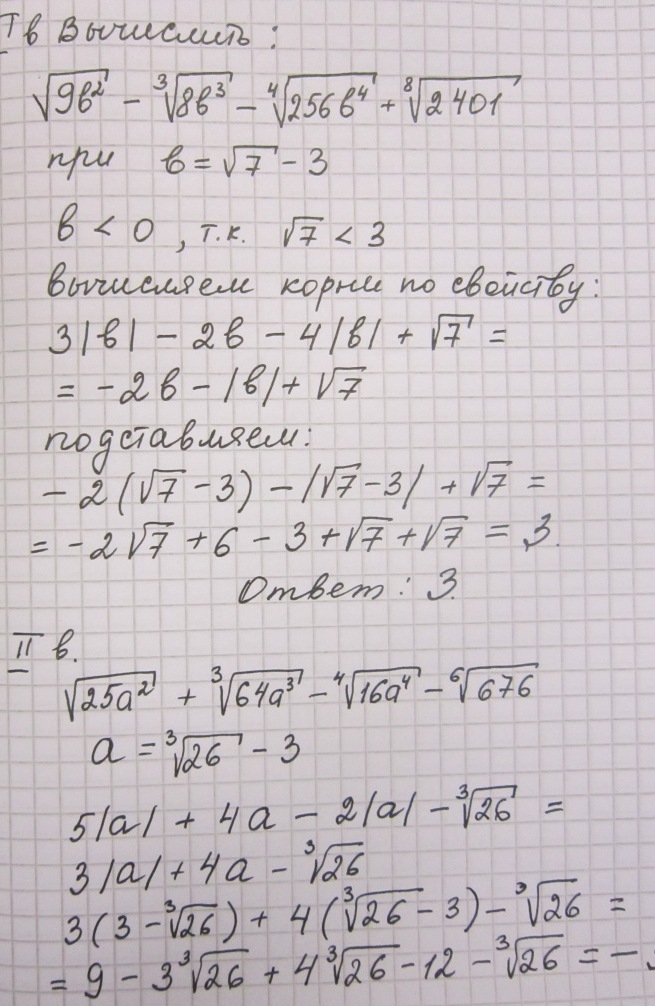 I в Вычислить:
√9b² - ³√8b³ - ⁴√256b⁴ + ⁸√2401
при b = √7 - 3
b < 0, т.к. √7 < 3
вычисляем корни по свойству:
3|b| - 2b - 4|b| + √7 =
= -2b - |b| + √7
подставляем:
-2(√7 - 3) - |√7 - 3| + √7 =
= -2√7 + 6 - 3 + √7 + √7 = 3.
Ответ: 3.
II в.
√25a² + ³√64a³ - ⁴√16a⁴ - ⁶√676
a = ³√26 - 3
5|a| + 4a - 2|a| - ³√26 =
3|a| + 4a - ³√26
3(3 - ³√26) + 4(³√26 - 3) - ³√26 =
= 9 - 3³√26 + 4³√26 - 12 - ³√26 = -